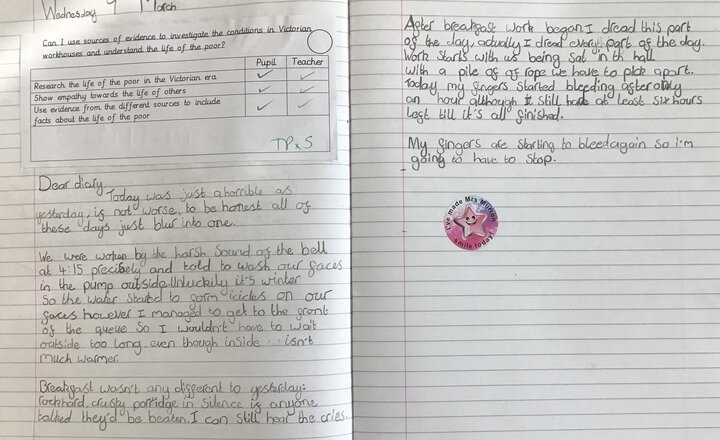 Wednesday 9 March
Can I use sources of evidence to investigate the conditions in Victorian
workhouses and understand the life of the poor?
Pupil Teacher
Research the life of the poor in the Victorian era
Show empathy towards the life of others
Use evidence from the different sources to include
facts about the life of the poor
TPxS
Dear diary,
Today was just ahorrible as
yesterday, if not worse, to be honest all of
these days just blur into one.
We were woken by the harsh Sound of the bell
at 4:15 precisely and told to wash our faces
in the pump outside. Unluckily it's winter
So the water started to form icicles on our
faces however I managed to get to the front
of the queue So I wouldn't have to wait
outside too long. even though inside isn't
Much warmer.
Breakfast wasn't any different to yesterday:
rockhard, crusty porridge in Silence if anyone
talked they'd be beaten. I can Still hear the cries.
After breakfast work began. I dread this part
of the day, actually I dread every part of the day.
Work Starts with us being Sat in th hall
with a pile of of rope we have to pick apart.
Today my fingers Started bleeding after only
an hour although I still had at least six hours
left till it's all finished.
My fingers are starting to bleed again so i'm
going to have to Stop.
I've made Mrs Milton
smile today!